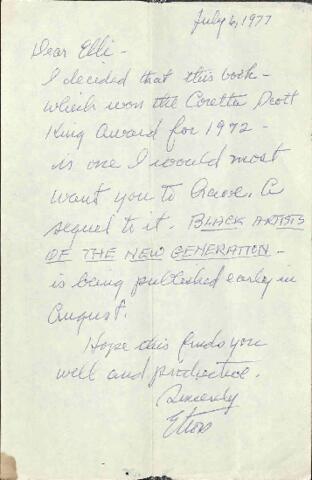 July 6, 1977
Dear Elli -
I decided that this book -
which won the Coretta Scott
King Award for 1972 -
is one I would most
want you to have. A
sequel to it, BLACK ARTISTS
OF THE NEW GENERATION -
is being published early in
August.
Hope this finds you
well and productive.
Sincerely
Elton